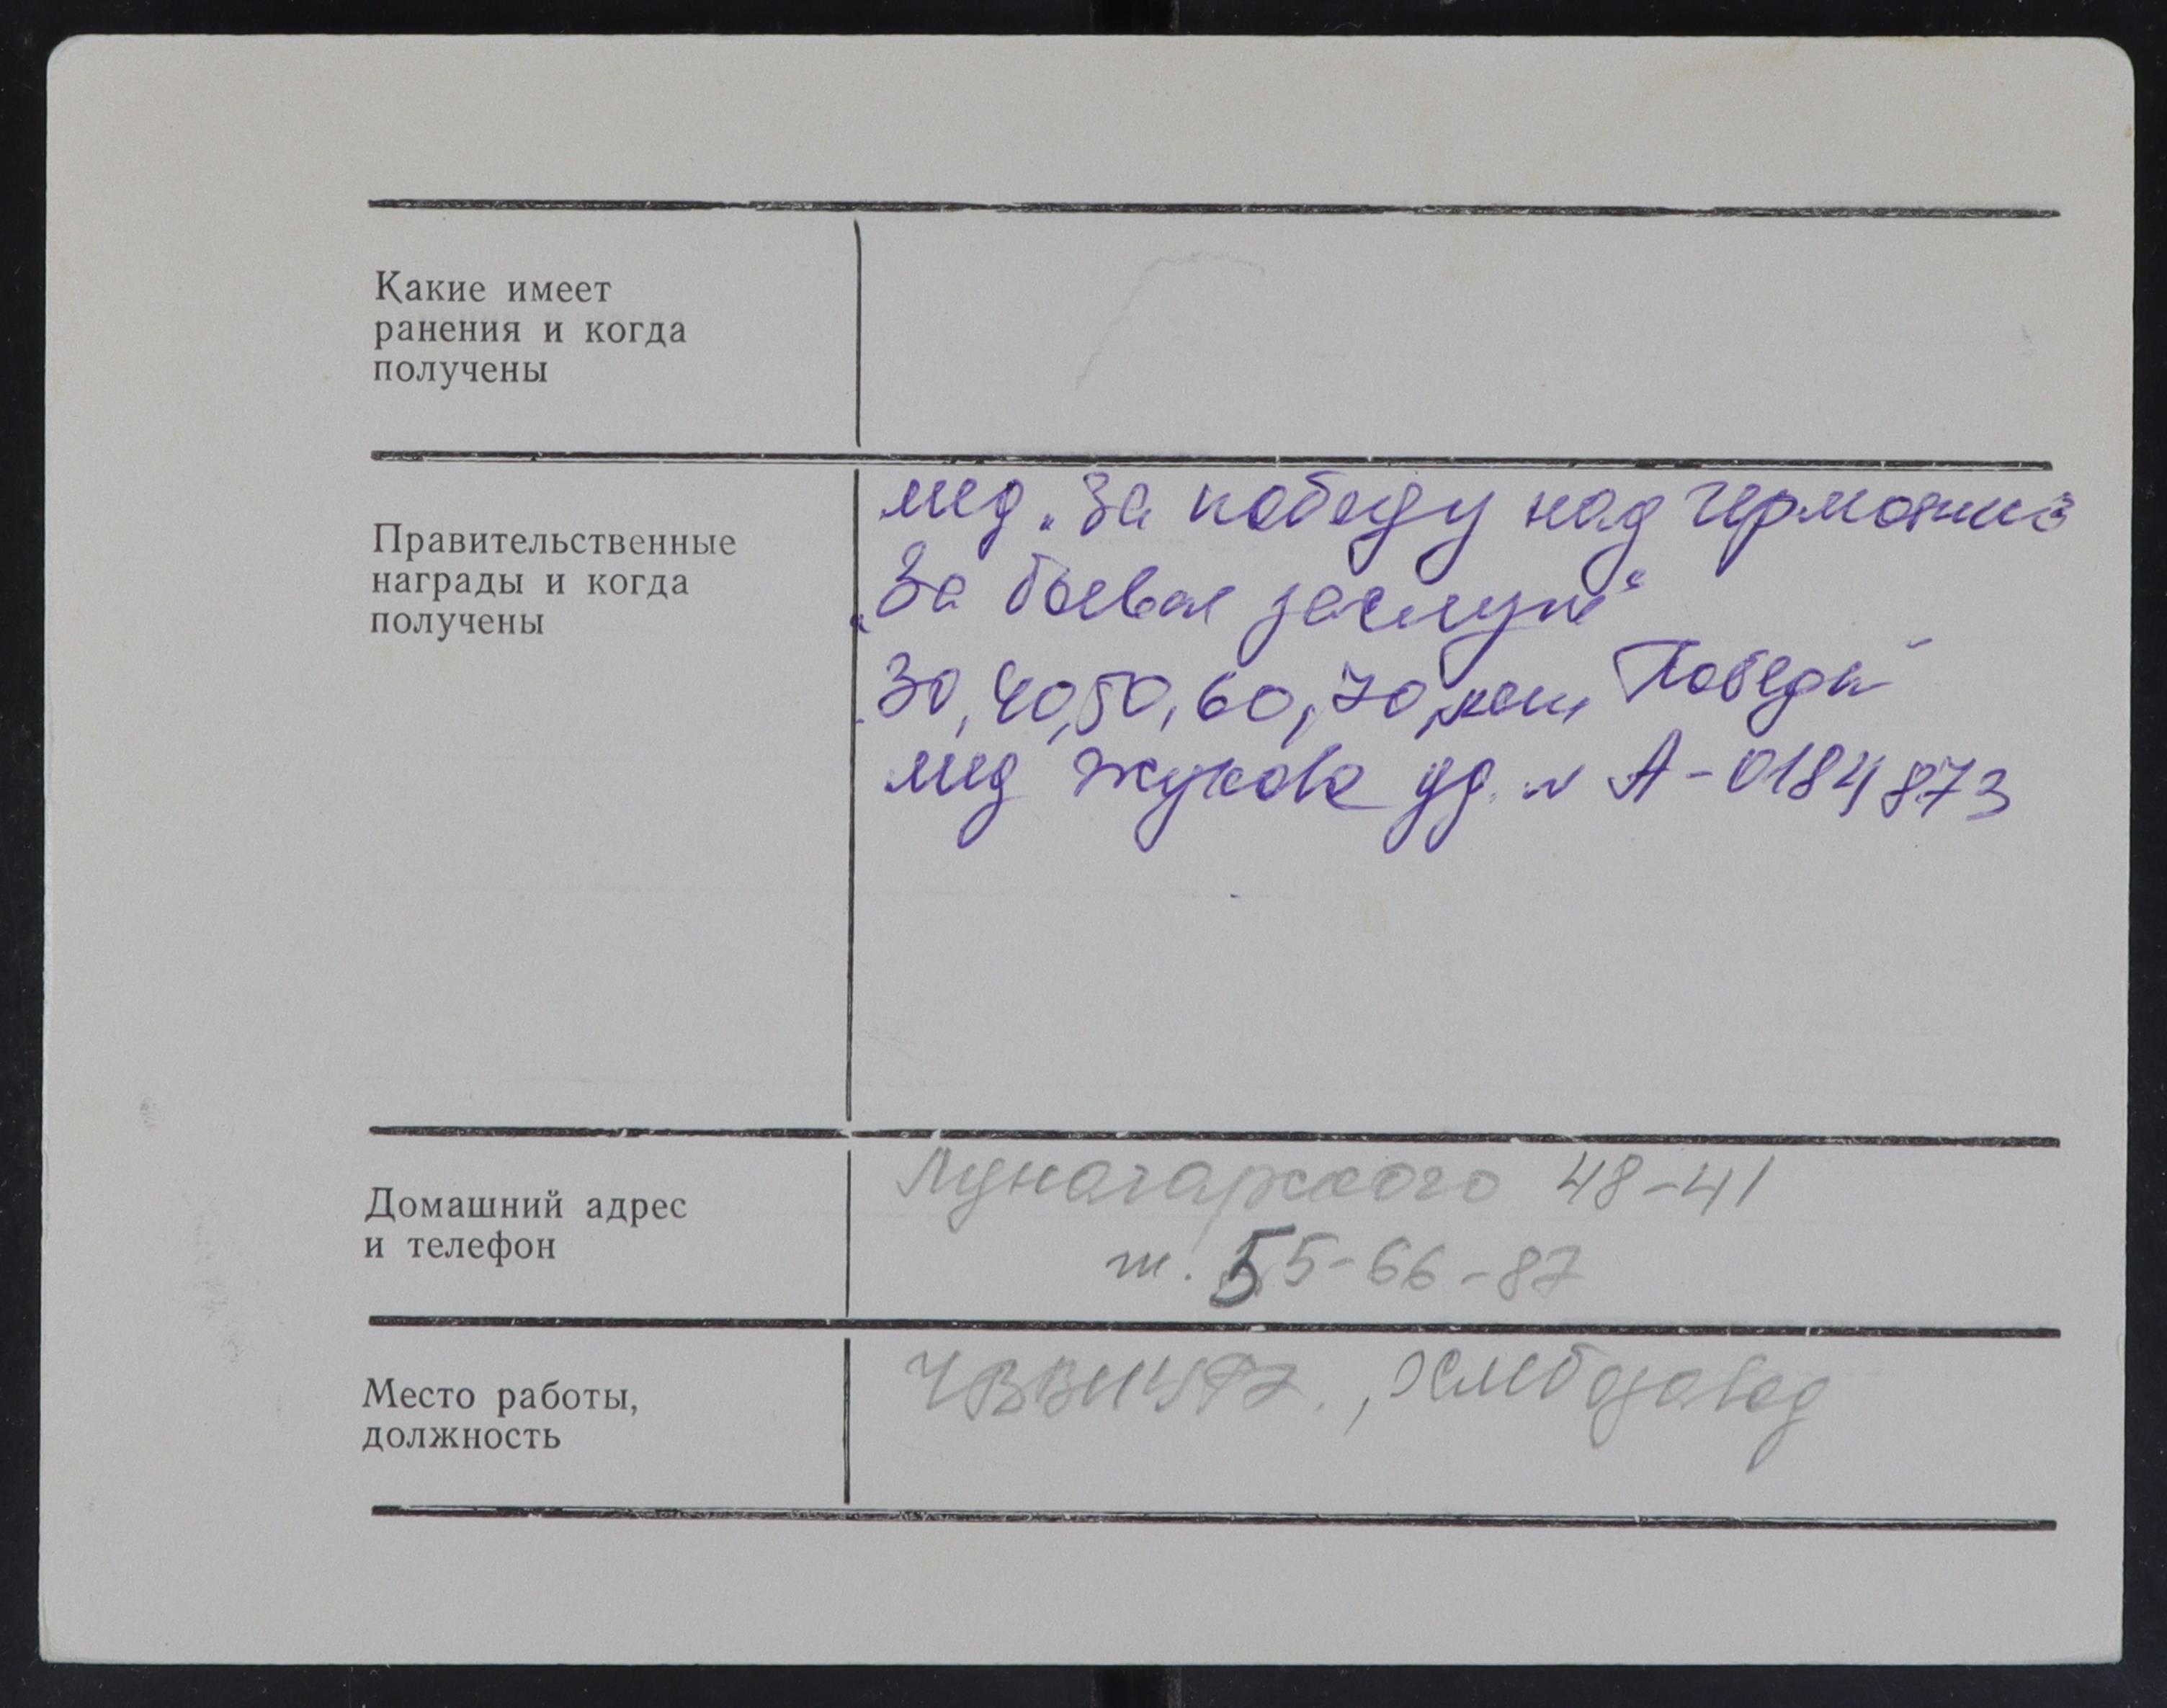 Какие имеет
ранения и когда
получены
Правительственные
награды и когда
получены
мед. „За победу над Германией
„За боевые заслуги“
30, 40, 50, 60, 70 лет Победы
мед Жукова уд. № А-0184873
Домашний адрес
и телефон
Луначарского 48-41
т. 55-66-87
Место работы,
должность
хлебозавод